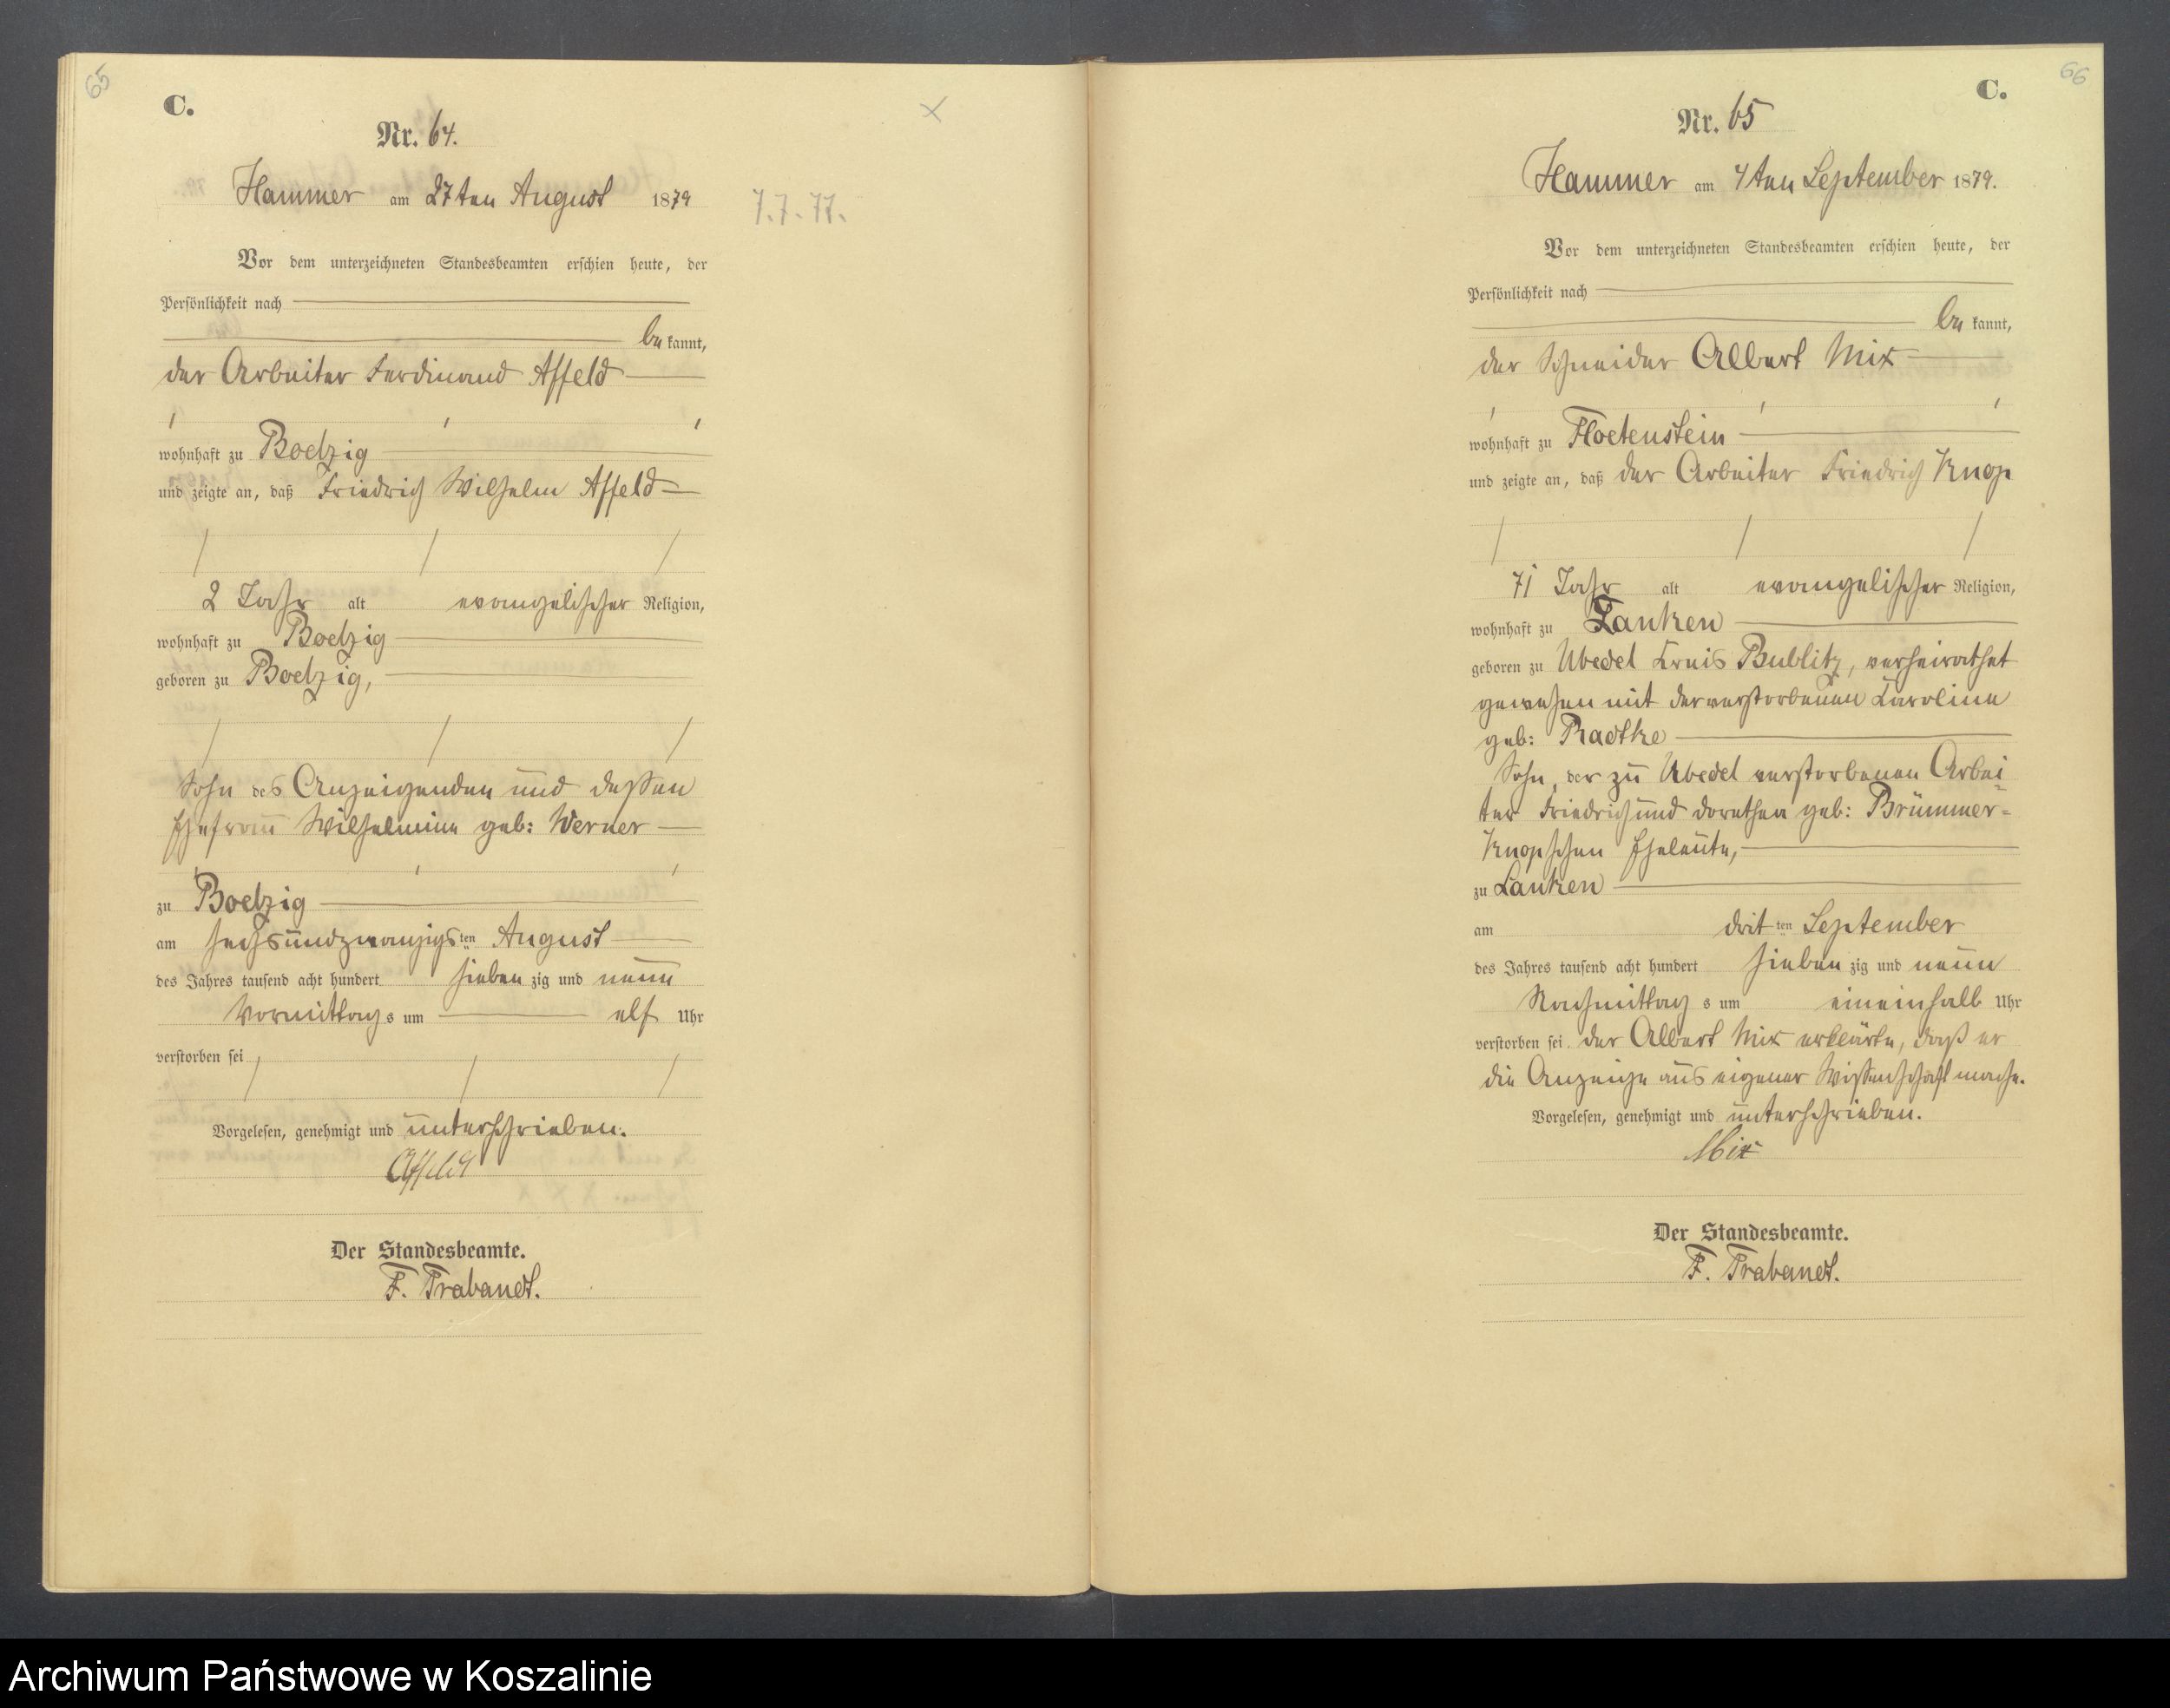 65
C.
Nr. 64.
Hammer am 27ten August 1879
7.7.77.
Vor dem unterzeichneten Standesbeamten erschien heute, der
Persönlichkeit nach
be kannt,
der Arbeiter Ferdinand Affeld
wohnhaft zu Boelzig
und zeigte an, daß Friedrich Wilhelm Affeld
2 Jahr alt evangelischer Religion,
wohnhaft zu Boelzig
geboren zu Boelzig,
Sohn des Anzeigenden und dessen
Ehefrau Wilhelmine geb: Werner
zu Boelzig
am sechsundzwanzigsten August
des Jahres tausend acht hundert sieben zig und neun
Vormittags um elf Uhr
verstorben sei
Vorgelesen, genehmigt und unterschrieben.
Affeld
Der Standesbeamte.
F. Trabandt.
66
C.
Nr. 65
Hammer am 4ten September 1879.
Vor dem unterzeichneten Standesbeamten erschien heute, der
Persönlichkeit nach
be kannt,
der Schneider Albert Mix
wohnhaft zu Floetenstein
und zeigte an, daß der Arbeiter Friedrich Knop
71 Jahr alt evangelischer Religion,
wohnhaft zu Lanken
geboren zu Ubedel Kreis Bublitz, verheirathet
gewesen mit der verstorbenen Caroline
geb: Radtke
Sohn der zu Ubedel verstorbenen Arbei
ter Friedrich und Dorothea geb: Brümmer-
Knopschen Eheleute,
zu Lanken
am dritten September
des Jahres tausend acht hundert sieben zig und neun
Nachmittags um eineinhalb Uhr
verstorben sei. Der Albert Mix erklärte, daß er
die Anzeige aus eigener Wissenschaft mache.
Vorgelesen, genehmigt und unterschrieben.
Mix
Der Standesbeamte.
F. Trabandt.
Archiwum Państwowe w Koszalinie